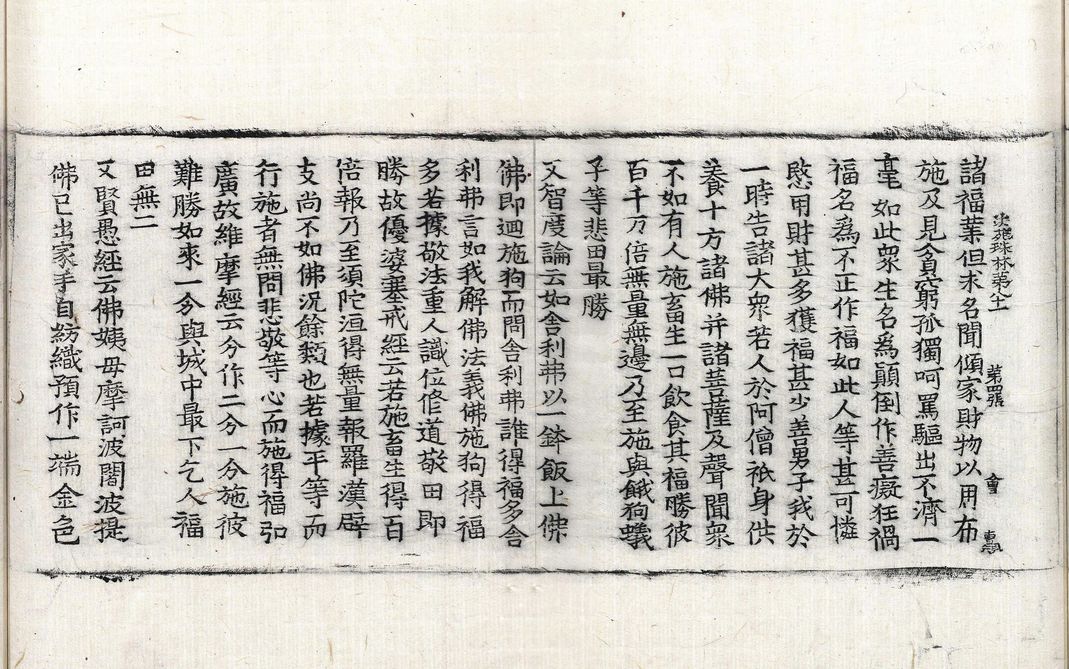 諸福業但求名聞傾家財物以用布
法苑珠林第八十　第四張　會　
施及見貧窮孤獨呵罵驅出不濟一
毫如此衆生名為顛倒作善癡狂禍
福名為不正作福如此人等甚可憐
愍用財甚多獲福甚少善男子我於
一時告諸大衆若人於阿僧祇身供
養十方諸佛并諸菩薩及聲聞衆
不如有人施畜生一口飲食其福勝彼
百千万倍無量無邊乃至施與餓狗蟻
子等悲田最勝
又智度論云如舍利弗以一鉢飯上佛
佛即迴施狗而問舍利弗誰得福多舍
利弗言如我解佛法義佛施狗得福
多若據敬法重人識位修道敬田即
勝故優婆塞戒經云若施畜生得百
倍報乃至須陀洹得無量報羅漢辟
支尚不如佛況餘類也若據平等而
行施者無問悲敬等心而施得福弘
廣故維摩經云分作二分一分施彼
難勝如來一分與城中最下乞人福
田無二
又賢愚經云佛姨母摩訶波闍波提
佛已出家手自紡織預作一端金色